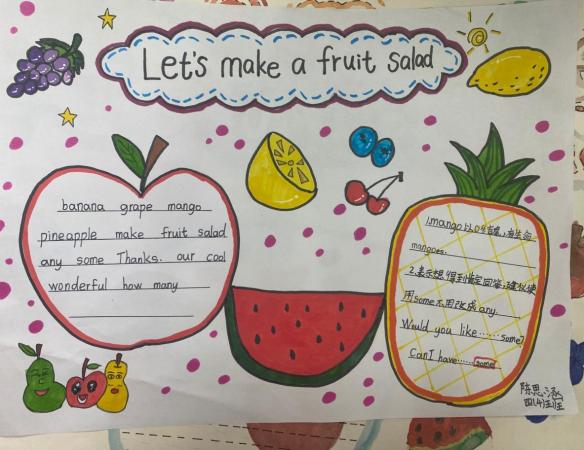 Let's make a fruit salad
banana grape mango
pineapple make fruit salad
any some Thanks. our cool
wonderful how many
1.mango以o结尾,有生命
mangoes.
2.表示想得到肯定回答,建议使
用some不用改成any
Would you like……some?
Can I have……some
陈思涵
四(4)班